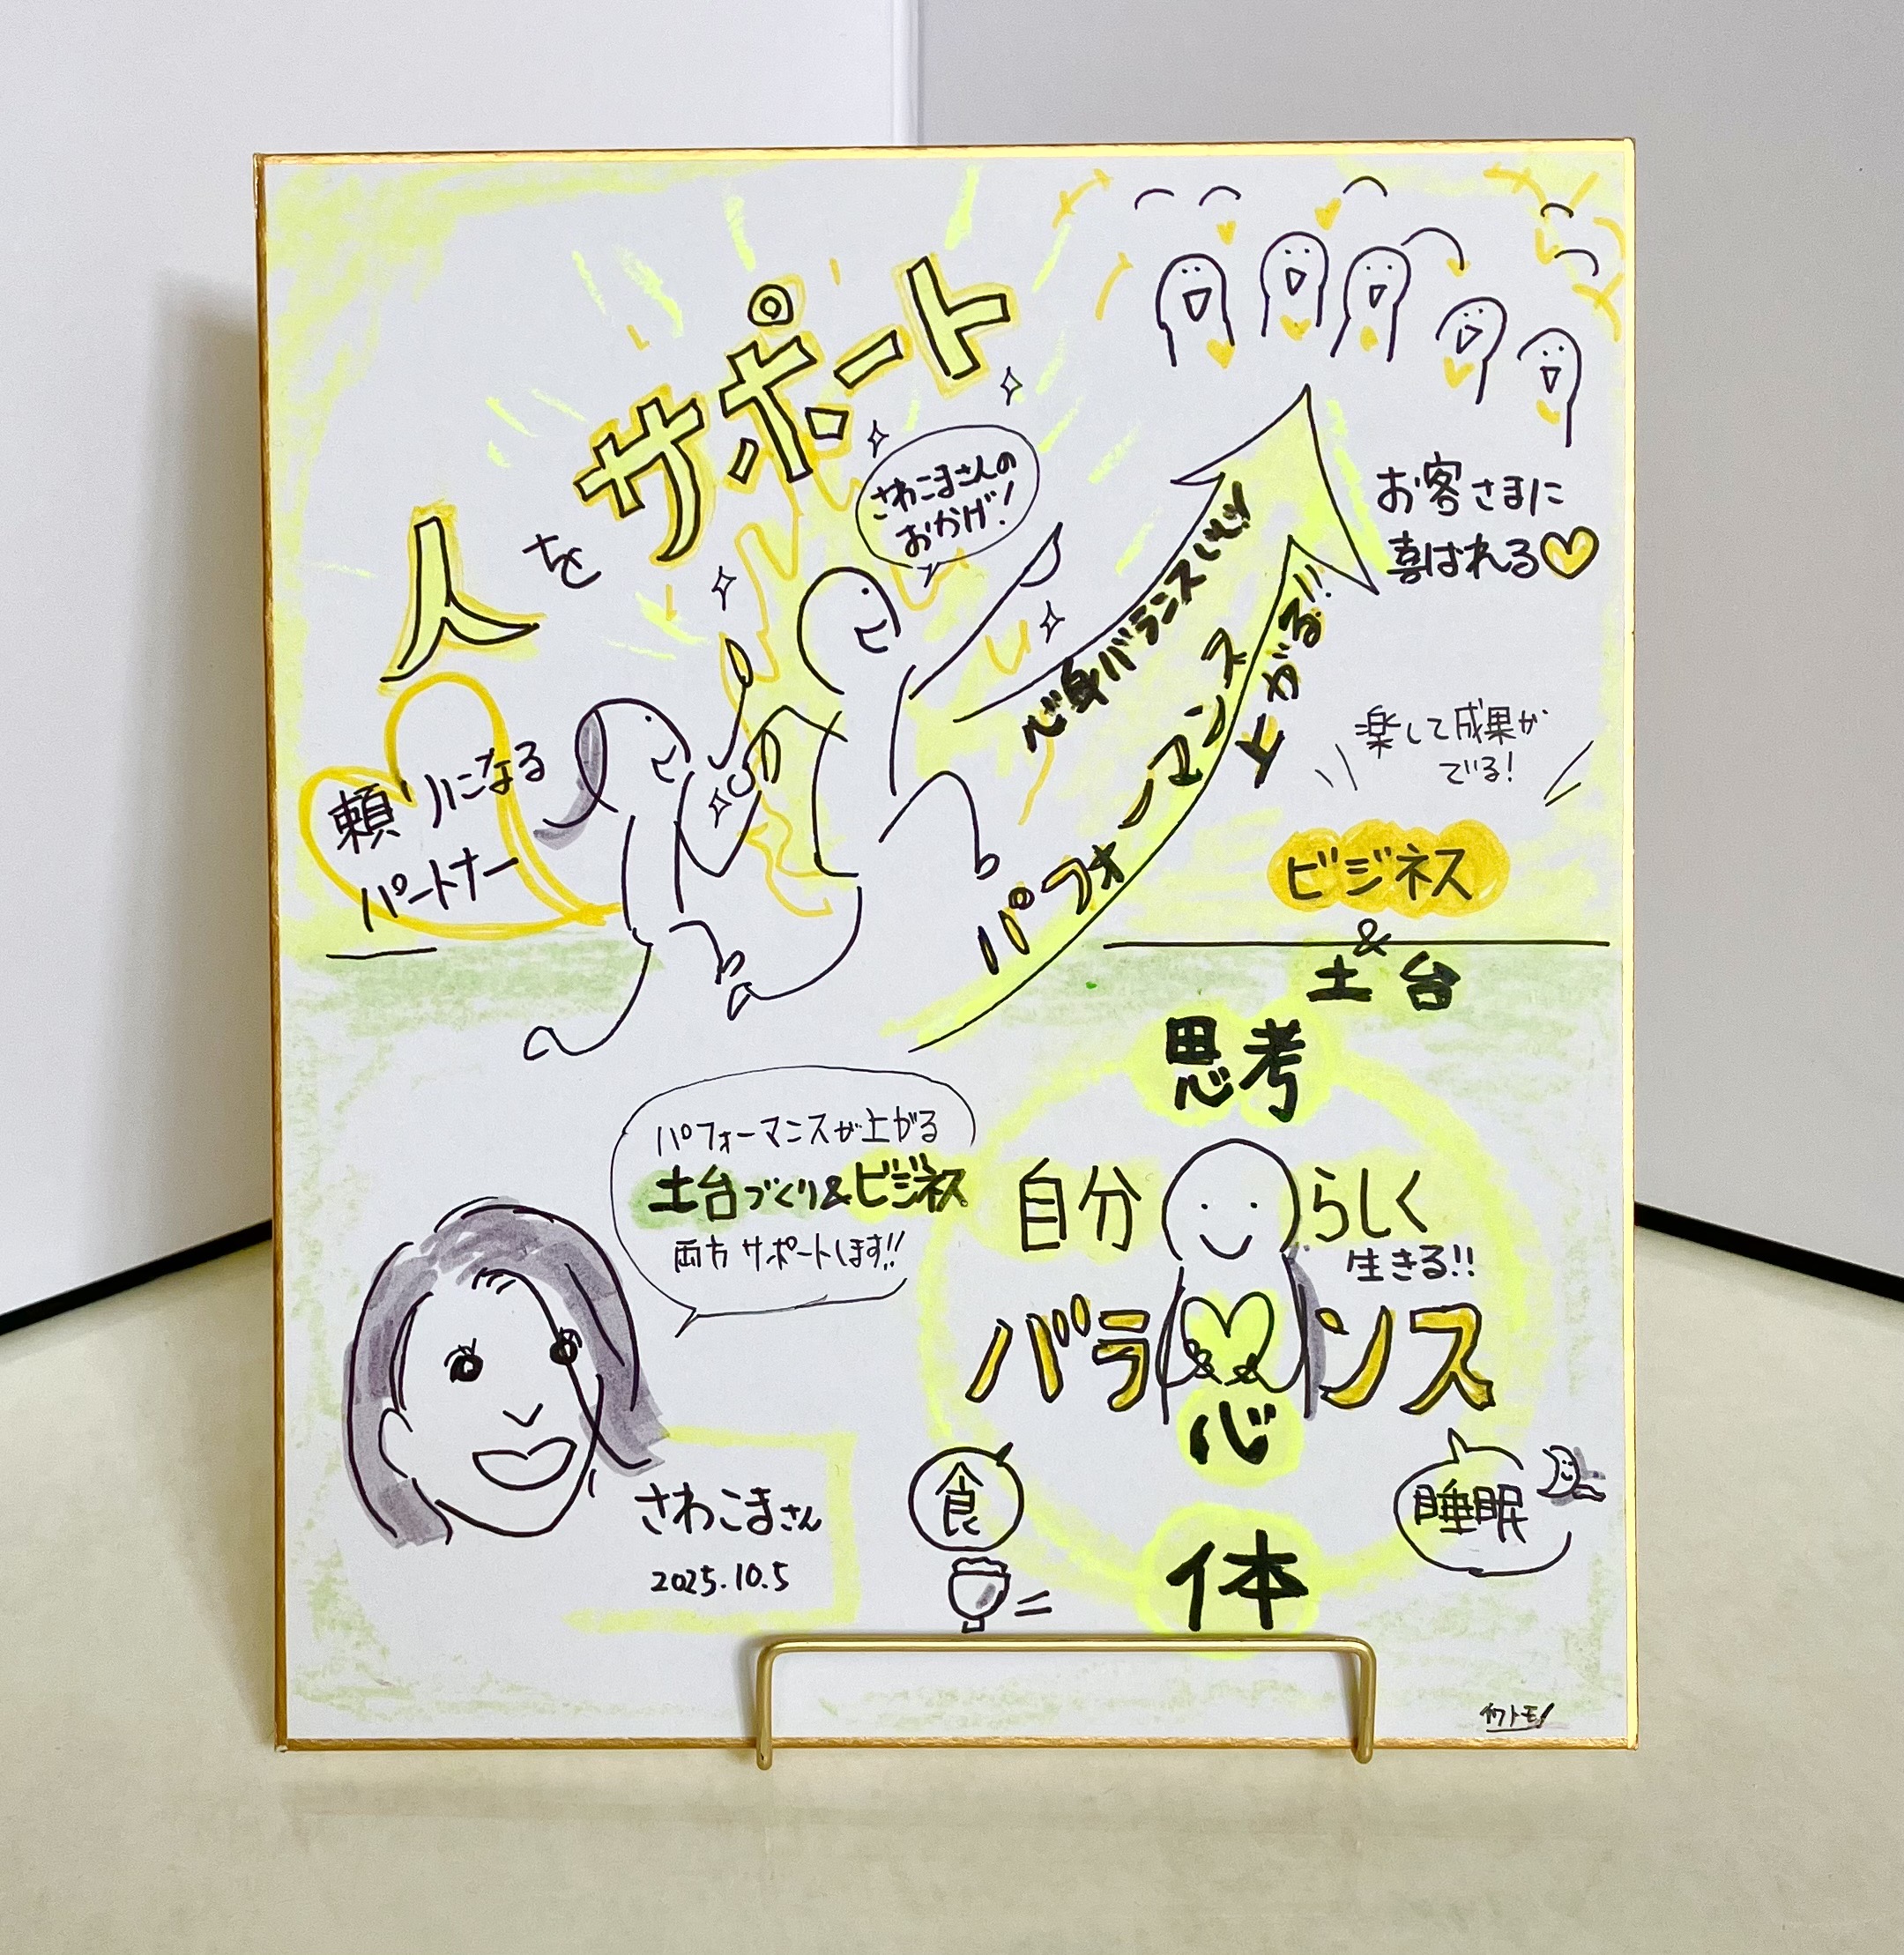 人をサポート
さわこまさんの
おかげ!
お客さまに
喜ばれる
心身バランスいい!
パフォーマンス上がる!!
頼りになる
パートナー
楽して成果が
でる!
ビジネス
&
土台
思考
自分らしく
生きる!!
バランス
心
体
食
睡眠
パフォーマンスが上がる
土台づくり&ビジネス
両方サポートします!!
さわこまさん
2025.10.5